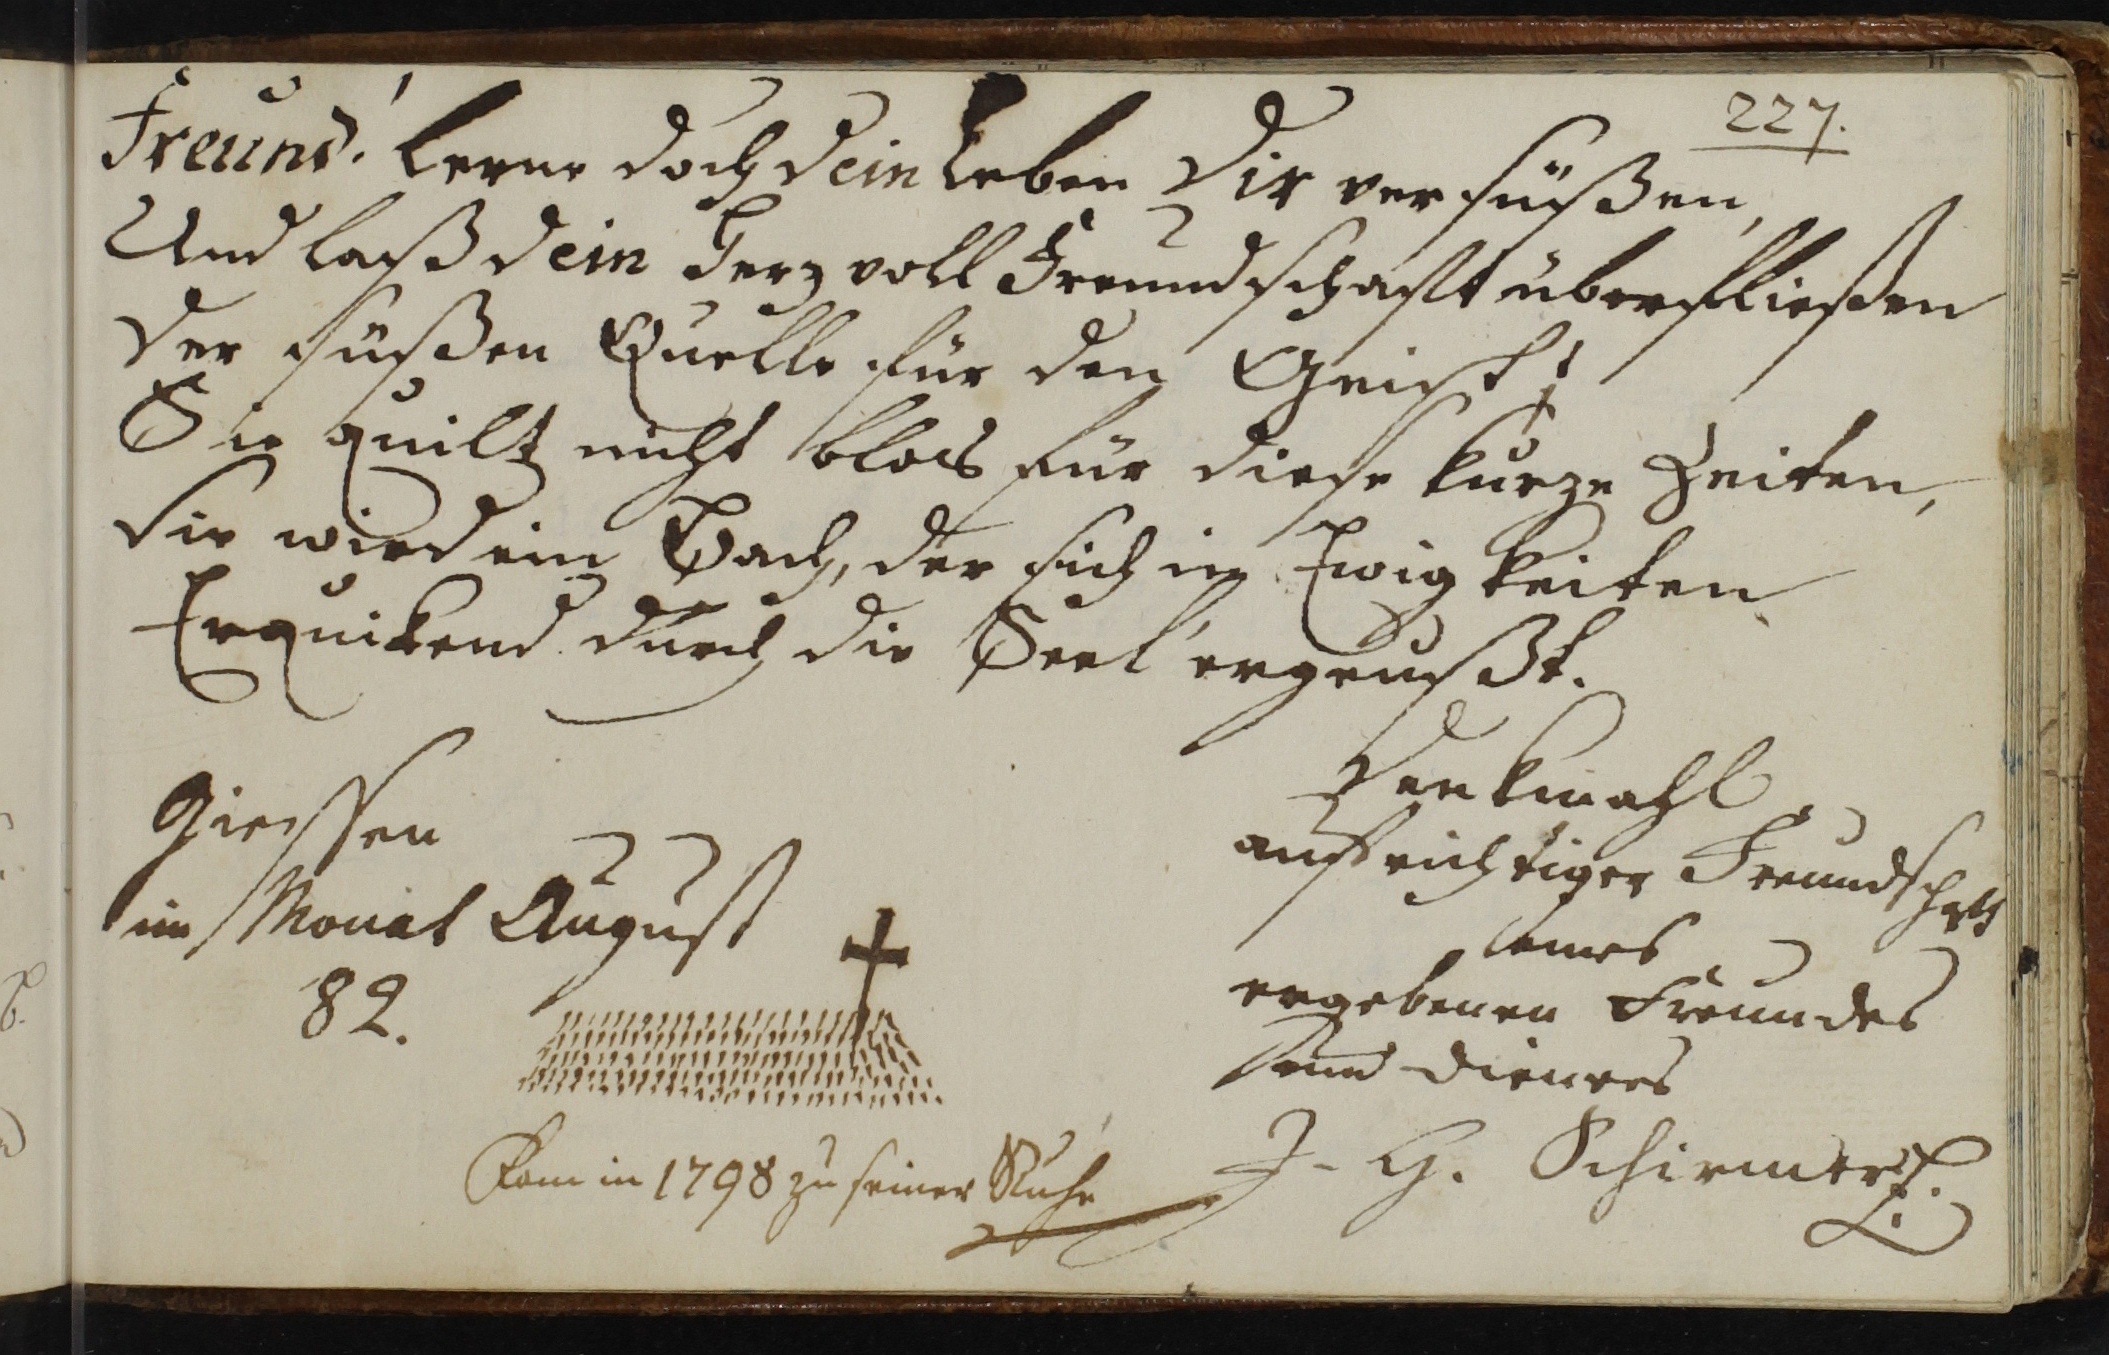 227.
Freund! lerne doch dein Leben Dir versüßen,
Und laß dein Herz voll Freundschaft überfließen
der süßen Quelle für den Geist!
Sie quilt nicht blos für diese kurze Zeiten,
sie wird ein Bach, der sich in Ewigkeiten
Erquikend durch die Seel' ergeußt.
Giessen
im Monat August
82.
Denkmahl
aufrichtiger Freundschaft
eines
ergebenen Freundes
und dieners
J. G. Schirmer
Kam in 1798 zu seiner Ruhe